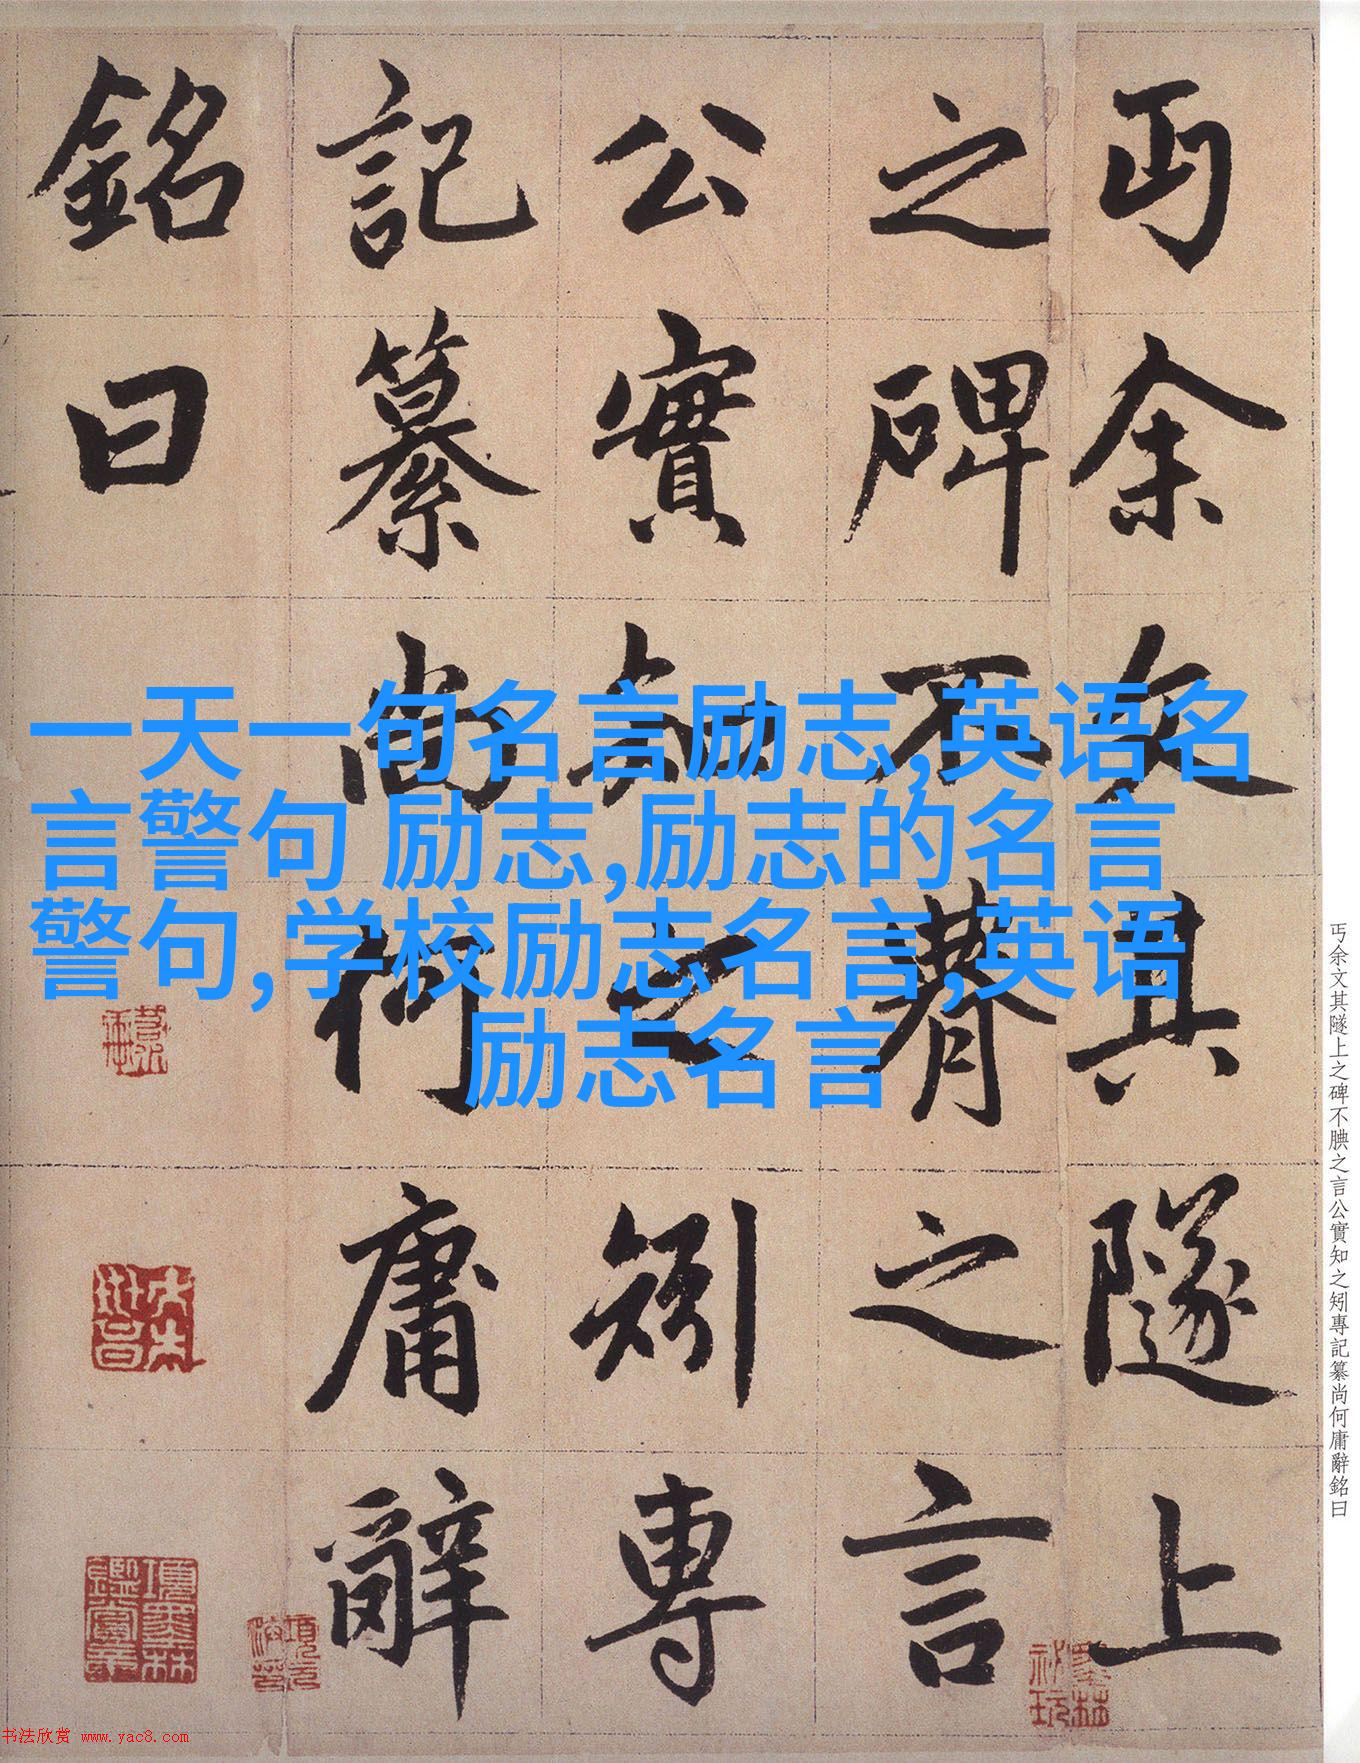 丐余文其隧上
之碑不腆之言
公實知之矧專
記纂尚何庸辭
銘曰
一天一句名言励志,英语名
言警句 励志,励志的名言
警句,学校励志名言,英语
励志名言
丐余文其隧上之碑不腆之言公實知之矧專記纂尚何庸辭銘曰
书法欣赏 www.yac8.com